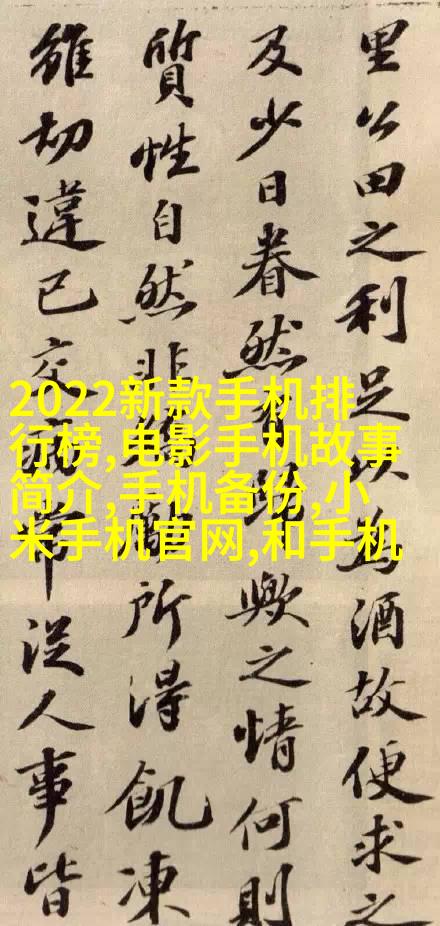 里公田之利足以為酒故便求之
及少日眷然有歸歟之情何則
質性自然非矯勵所得飢凍
雖切違己交病常從人事皆
2022新款手机排
行榜,电影手机故事
简介,手机备份,小
米手机官网,和手机